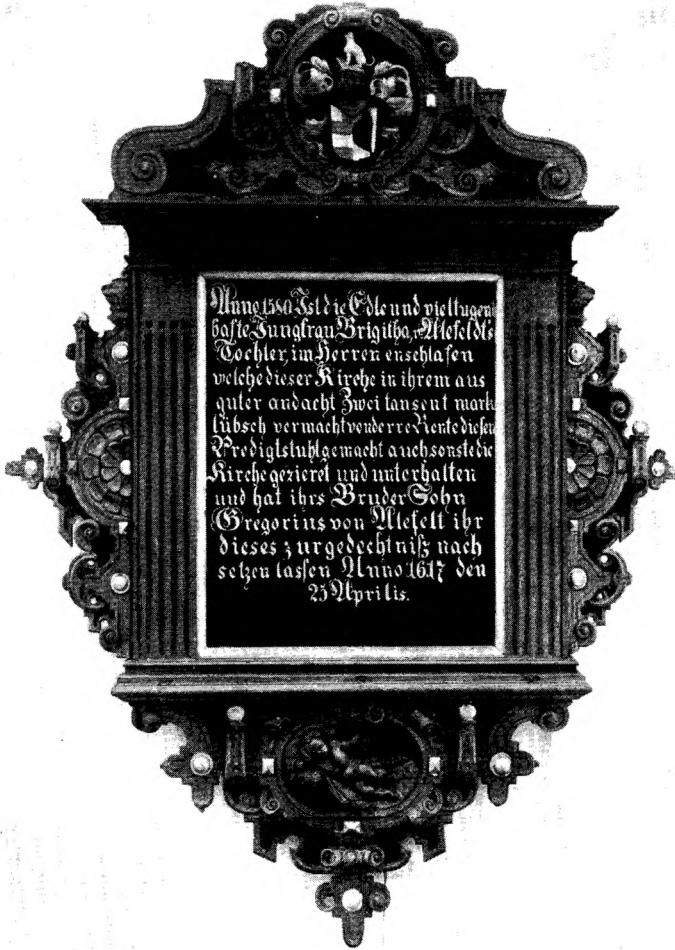 Anno 1580 Ist die Edle und vieltugent
hafte Jungfrau Brigitha, v. Alefeldt's
Tochler, im Herren enschlafen
welche dieser Kirche in ihrem aus
guter andacht Zwei tausent mark
lübsch vermacht von derre Rente diesen
Predigtstuhl gemacht auch sonste die
Kirche gezieret und unterhalten
und hat ihrs Bruder Sohn
Gregorius von Alefelt ihr
dieses zur gedechtniß nach
setzen lassen Anno 1617 den
25 Aprilis.